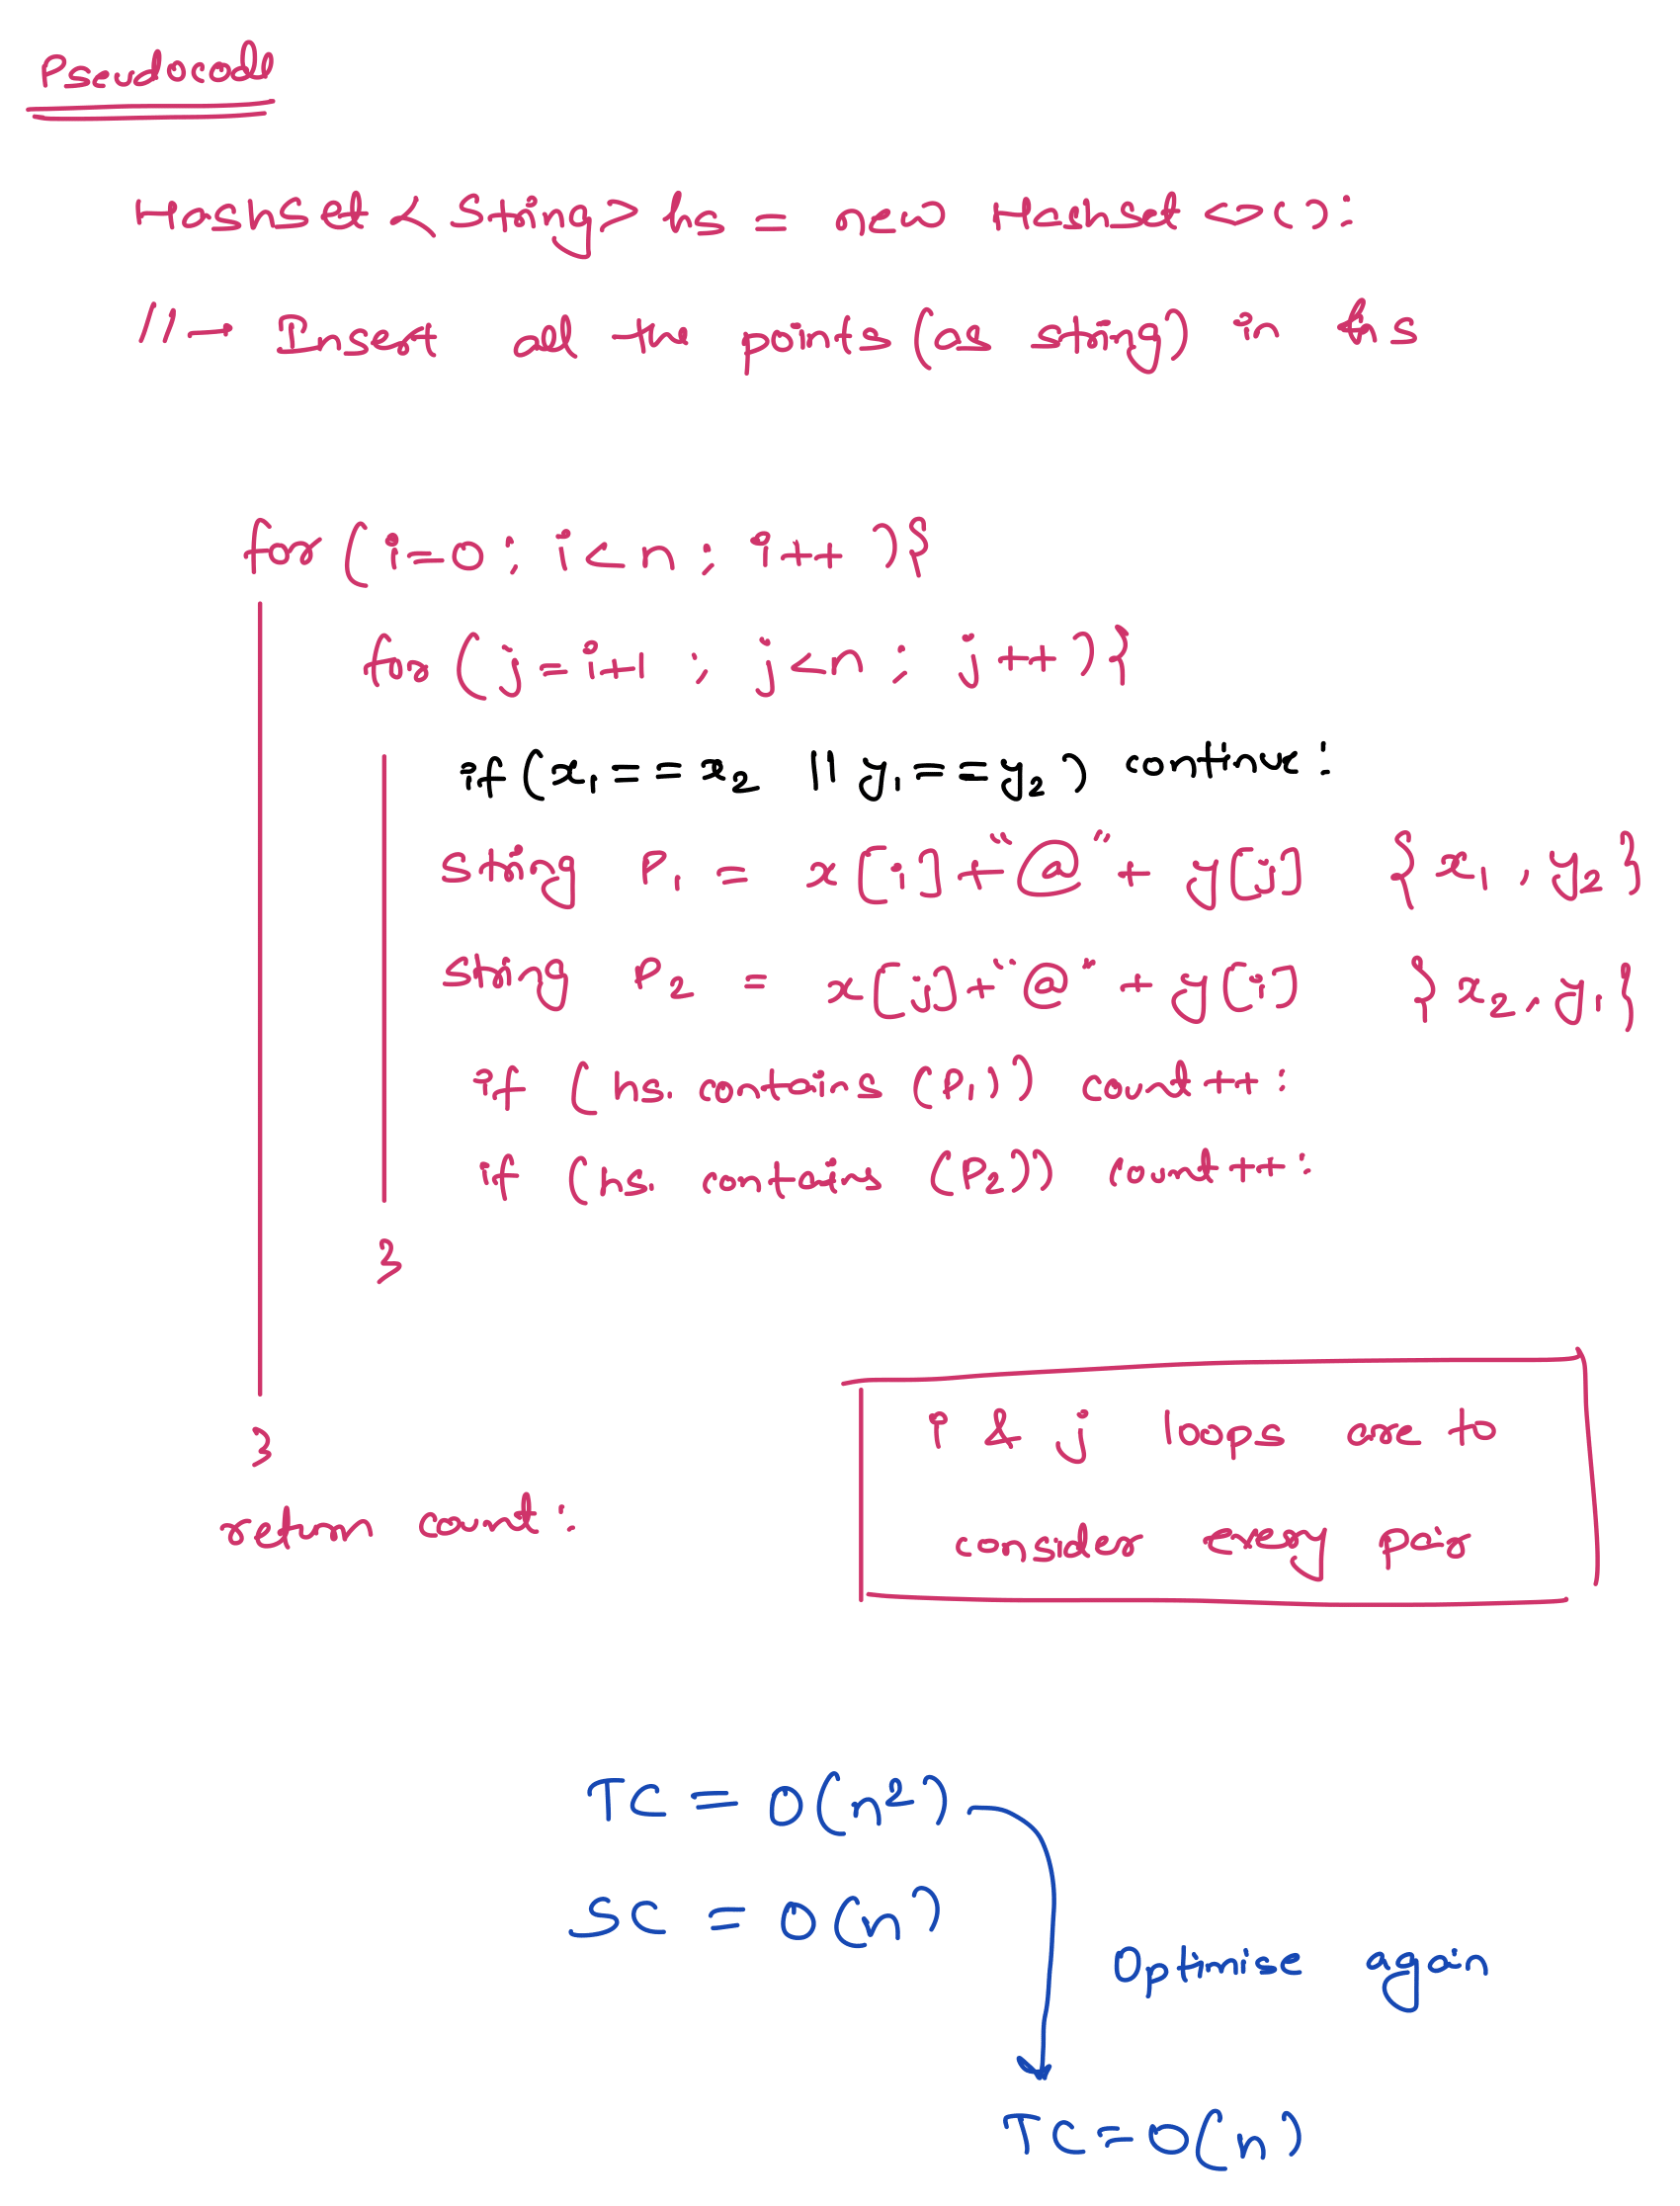 Pseudocode
Hashset < String > hs = new Hashset <> ( ) ;
// → Insert all the points (as string) in hs
for ( i=0 ; i<n ; i++ ){
for ( j=i+1 ; j<n ; j++ ){
if (x1 == x2 || y1 == y2 ) continue ;
String P1 = x[i] + "@" + y[j] { x1 , y2 }
String P2 = x[j] + "@" + y[i] { x2 , y1 }
if ( hs. contains (P1)) count ++ ;
if (hs. contains (P2)) count ++ ;
}
}
return count ;
i & j loops are to
consider every pair
TC = O(n²)
SC = O(n)
Optimise again
TC = O(n)